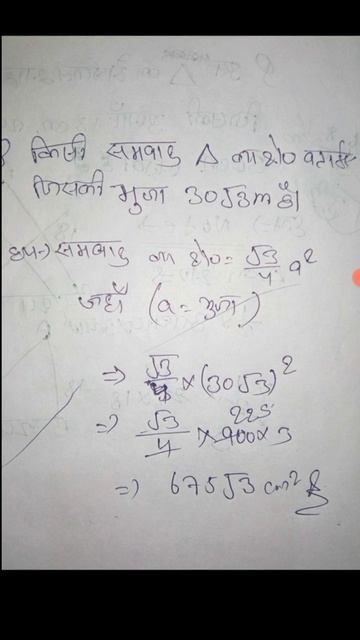 किसी समबाहु △ का क्षे० बताईए
जिसकी भुजा 30√3m है।
हल-> समबाहु का क्षे० = √3/4 a²
जहाँ (a = भुजा)
=> √3/4 × (30√3)²
=> √3/4 × 900 × 3
225
=> 675√3 cm²